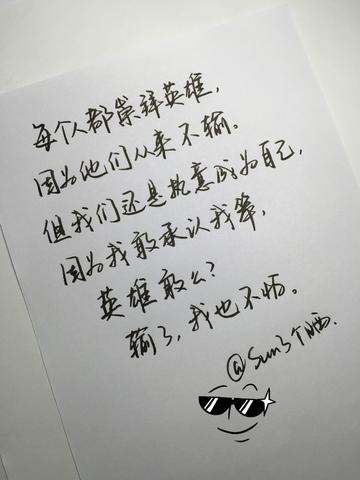 每个人都崇拜英雄,
因为他们从来不输。
但我们还是执意成为自己,
因为我敢承认我笨,
英雄敢么?
输了,我也不怕。
@Sun了个晒.